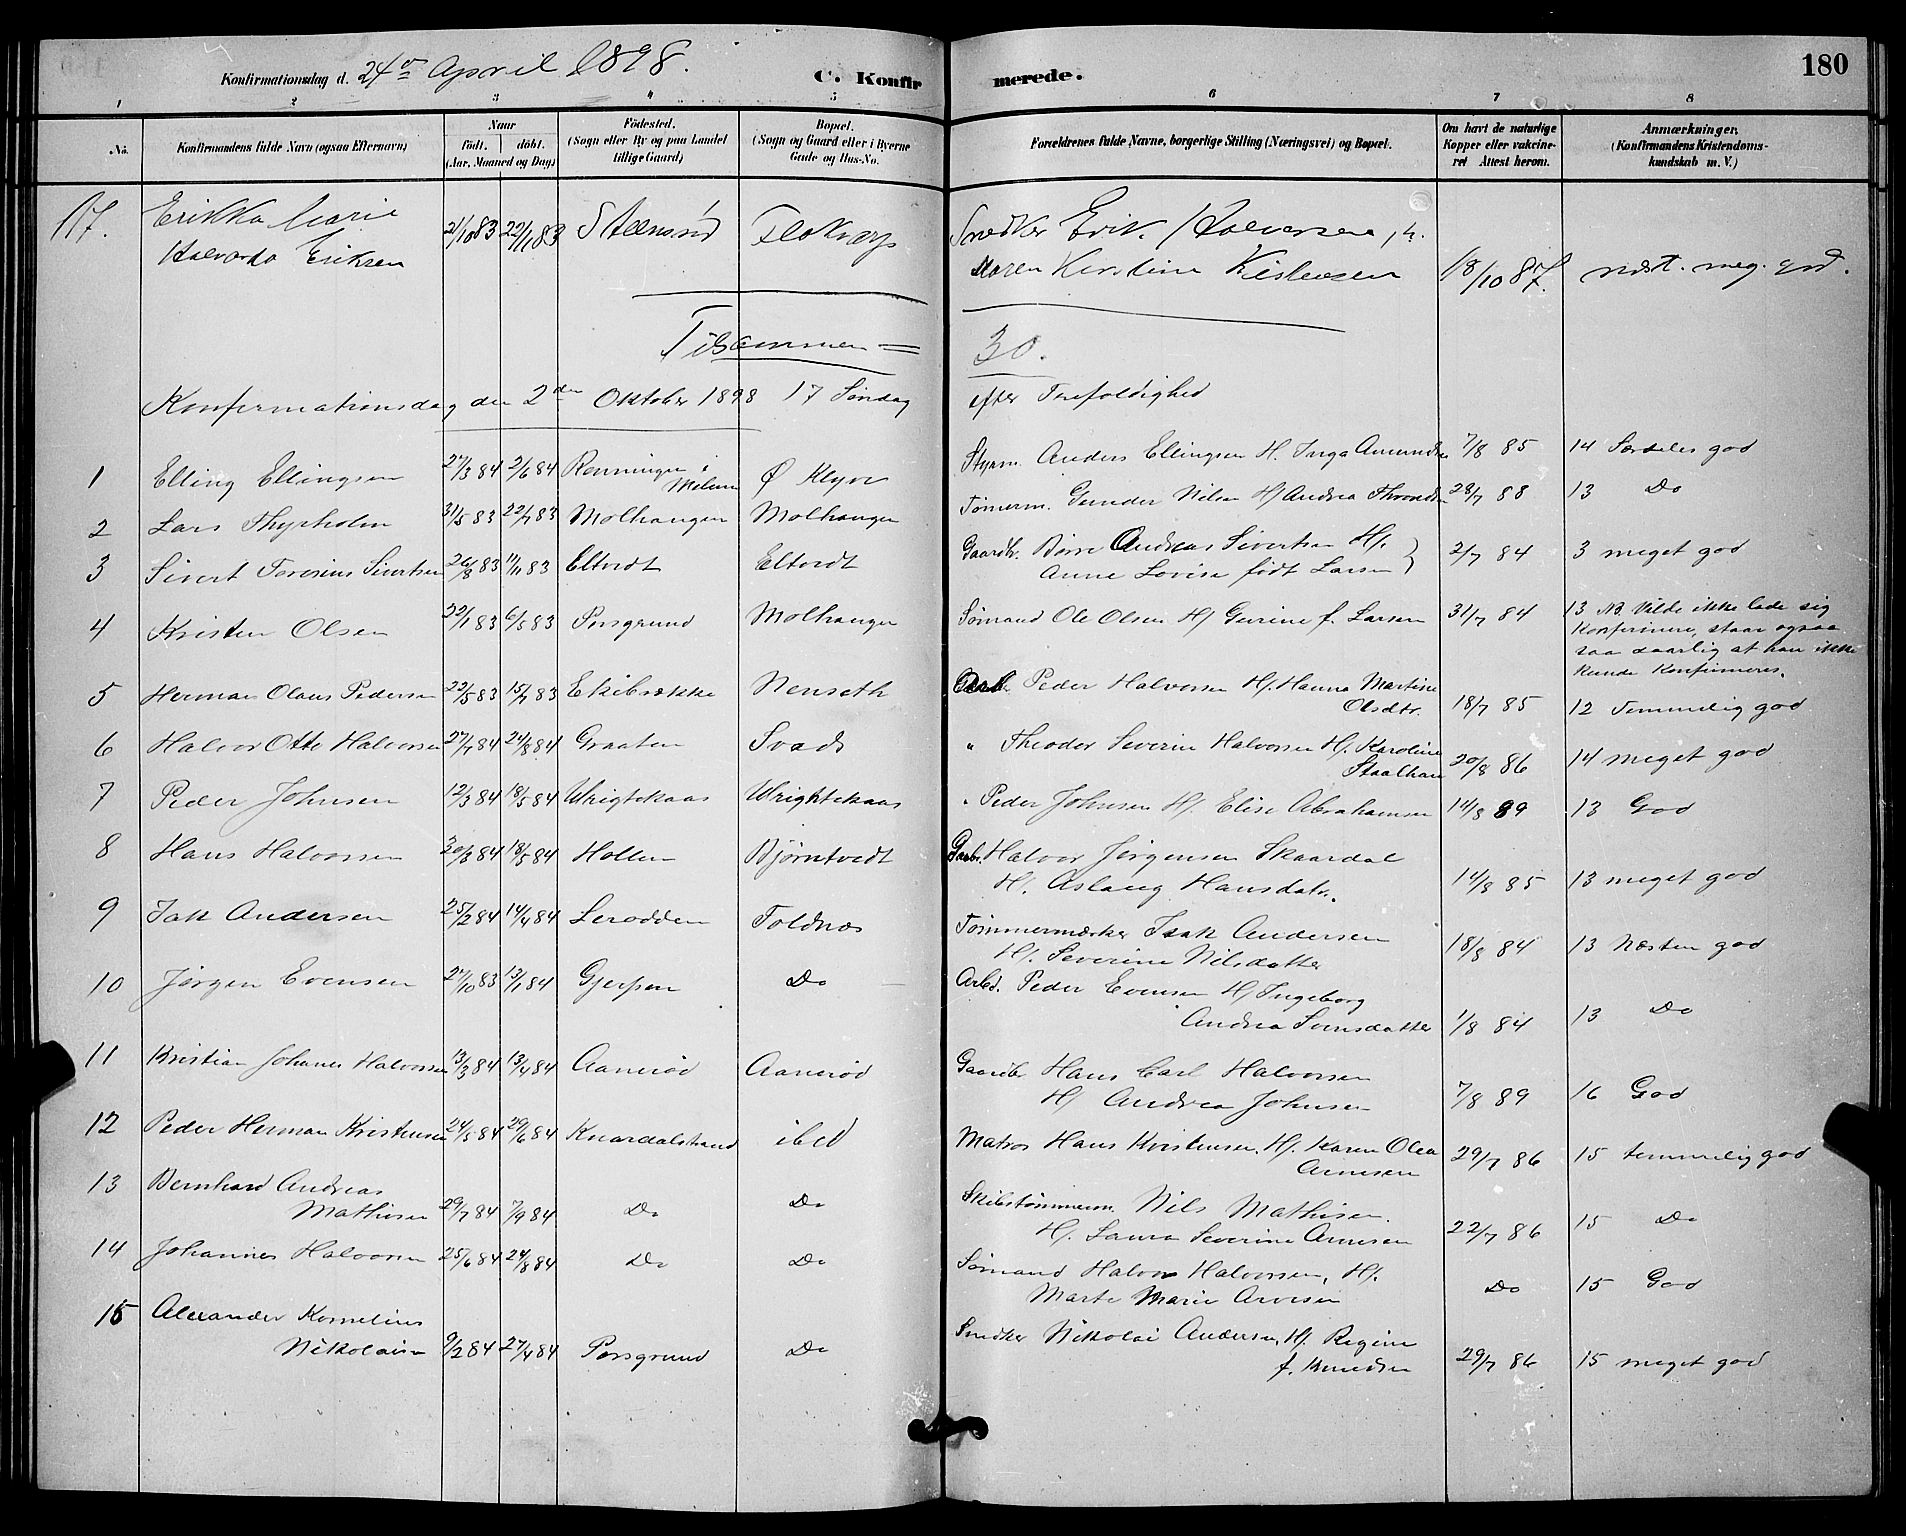 Konfirmationsdag d. 24de April 1898. C. Konfirmerede. 180
1 2 3 4 5 6 7 8
No.
Konfirmandens fulde Navn (ogsaa Efternavn)
Naar
födt. döbt.
(Aar, Maaned og Dag)
Födested.
(Sogn eller By og paa Landet
tillige Gaard)
Bopæl.
(Sogn og Gaard eller i Byerne
Gade og Hus-No.
Forældrenes fulde Navne, borgerlige Stilling (Næringsvei) og Bopæl.
Om havt de naturlige
Kopper eller vakcine-
ret Attest herom.
Anmærkninger,
(Konfirmandens Kristendoms-
kundskab m. V.)
17. Erikka Marie
Halvarda Eriksen 2/10 83 22/11 83 Snedker Erik Halvorsen, h.
Maren Kirstine 18/10 87. næst. meg. god.
Tilsammen = 30.
Konfirmationsdag den 2den Oktober 1898 17 Søndag efter Trefoldighed
1 Elling Ellingsen 27/3 84 2/6 84 Ø Klyve Styrm. Anders Ellingsen H. Inga Amundsen 7/8 85 14 Særdeles god
2 Lars Thyrholm 31/5 83 22/7 83 Molhaugen Molhaugen Tømerm. Gunder Nilsen H/ Andrea 28/7 88 13 Do
3 Sivert Severius Sivertsen 26/8 83 11/11 83 Eltvedt Eltvedt Gaardbr. Børre Andreas Sivertsen H/.
Anne Lovise født Larsen 2/7 84 3 meget god
4 Kristen Olsen 22/1 83 6/5 83 Porsgrund Molhaugen Sømand Ole Olsen H/ Gurine f. Larsen 31/7 84 13 NB Vilde ikke lade sig
Konfirmere, staar ogsaa
saa daarlig at han ikke
kunde Konfirmeres.
5 Herman Olaus Pedersen 22/5 83 15/7 83 Ekibrække Nenseth Arb. Peder Halvorsen H/. Hanna Martine
Olsdtr. 18/7 85 12 Temmelig god
6 Halvor Otto Halvorsen 27/7 84 24/8 84 Graaten Svads " Theodor Severin Halvorsen H/. Karoline
Staalhan 20/8 86 14 meget god
7 Peder Johnsen 12/3 84 18/5 84 Wrigtekaas Wrightekaas " Peder Johnsen H/. Elise Abrahamsen 14/8 89 13 God
8 Hans Halvorsen 30/3 84 18/5 84 Hollen Bjørntvedt Gaarbr. Halvor Jørgensen Skaardal
H/. Aslaug Hansdatr. 14/8 85 13 meget god
9 Isak Andersen 25/2 84 14/4 84 Lerodden Toldnæs Tømmermærker Isak Andersen
H/. Severine Nilsdatter 18/8 84 13 Næsten god
10 Jørgen Evensen 27/10 83 13/1 84 Gjerpen Do Arbd. Peder Evensen H/ Ingeborg
Andrea 1/8 84 13 Do
11 Kristian Johanes Halvorsen 13/3 84 13/4 84 Aanerød Aanerød Gaardbr Hans Carl Halvorsen
H/ Andrea Johnsen 7/8 89 16 God
12 Peder Herman Kristensen 24/5 84 29/6 84 Knardalstrand ibid Matros Hans Kristensen. H/. Karen Olea
Arnesen 29/7 86 15 temmelig god
13 Bernhard Andreas
Mathisen 29/7 84 7/9 84 Do Do Skibstømmerm. Nils Mathisen.
H/. Laura Severine Arnesen 22/7 86 15 Do
14 Johannes Halvorsen 25/6 84 24/8 84 Do Do Sømand Halvor Halvorsen, H/.
Marte Marie Arvesen Do 15 God
15 Alexander Kornelius
Nikolaisen 9/2 84 27/4 84 Porsgrund Do Snedker Nikolai Andersen, H/. Regine
f. Knudsen 29/7 86 15 meget god